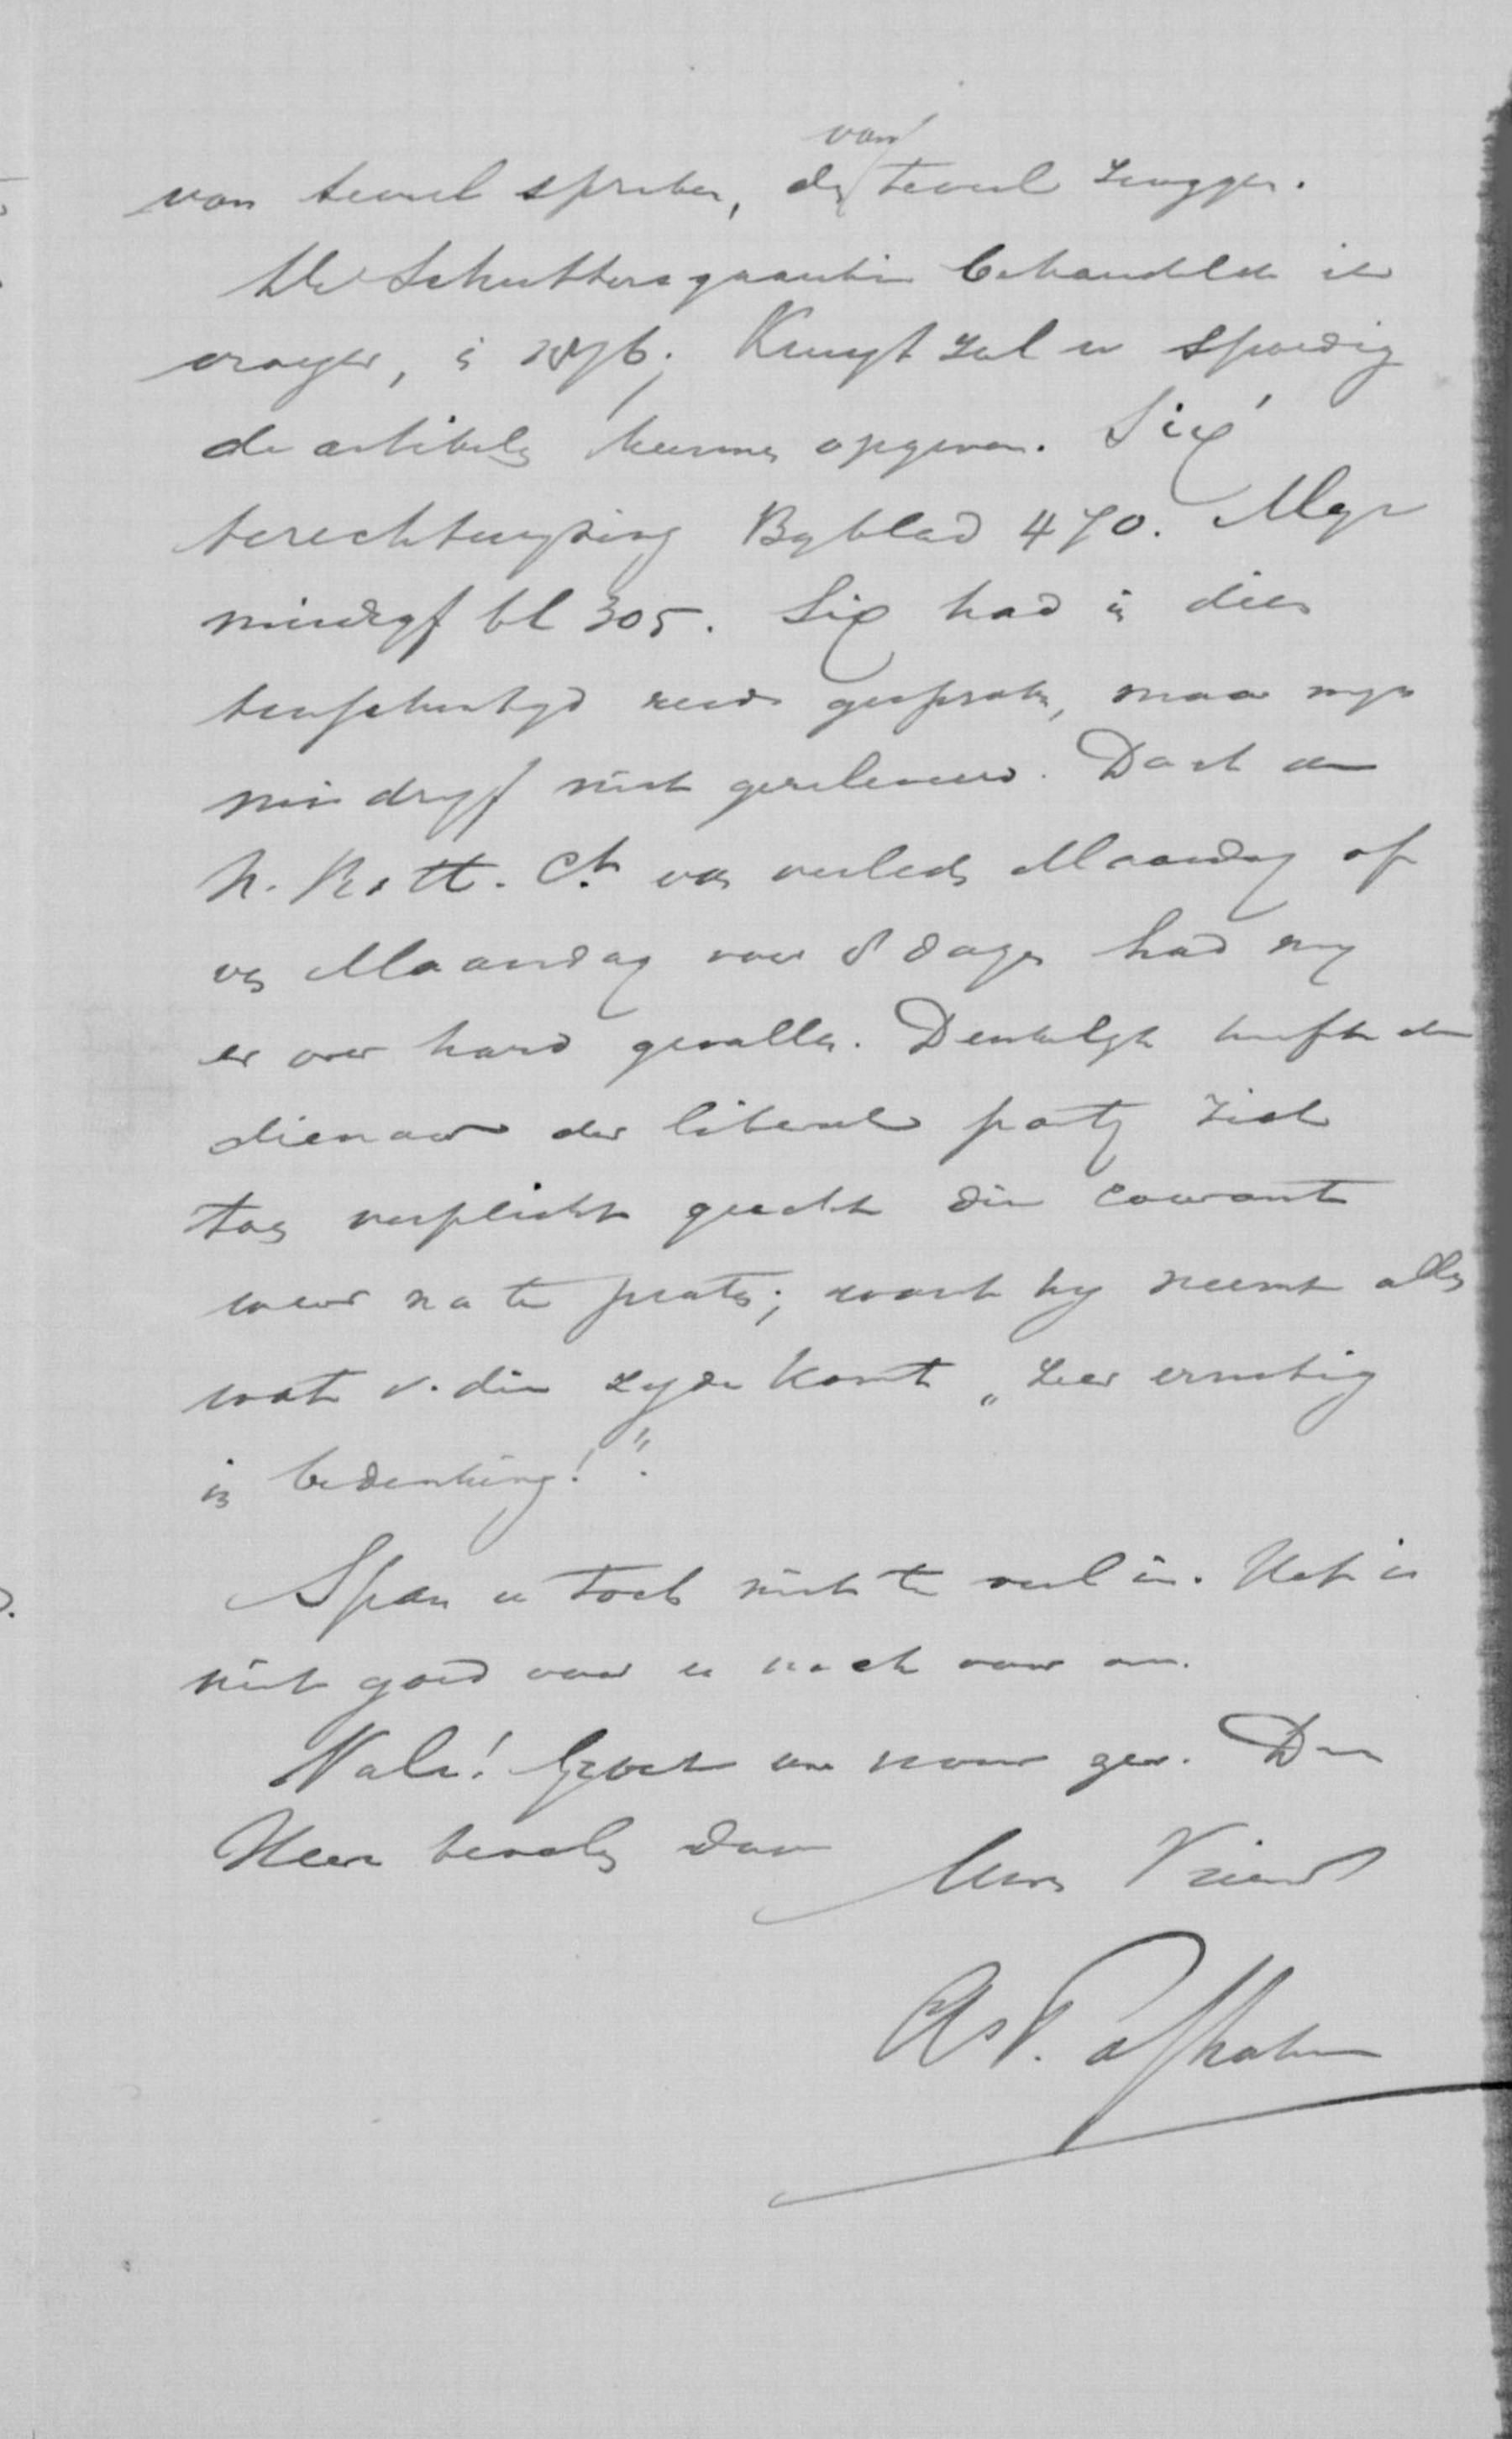 van
van teveel spreken, dan teveel zwijgen.
De Schuttersquaestie behandelde ik
vroeger, in 1876; Kuyt zal u spoedig
de artikels kunnen opgeven. Six'
terechtwyzing Byblad 470. Myn
misdryf bl 305. Six had in dien
tusschentyd reeds gesproken, maar myn
misdryf niet gereleveerd. Doch de
N. Rott. Ct van verleden Maandag of
van Maandag voor 8 dagen had my
er over hard gevallen. Denkelyk heeft de
dienaar der liberale party zich
toen verplicht geacht die courant
weer na te praten; want hy neemt alles
wat v. die zyde komt „zeer ernstig
in bedenking!".
Span u toch niet te veel in. Het is
niet goed voor u noch voor ons.
Vale! Groet uwe vrouw zeer. Den
Heere bevolen door
Uwen Vriend